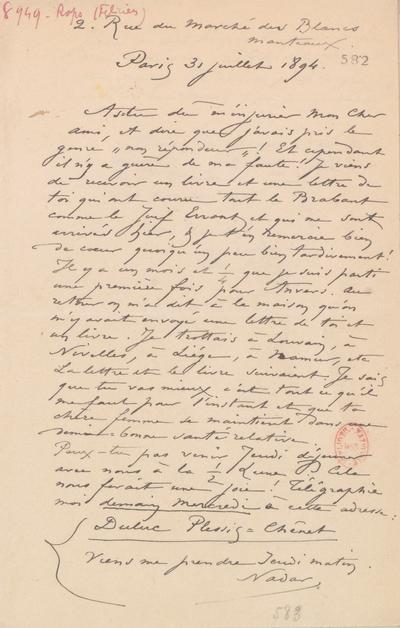 8949 - Rops (Félicien)
2. Rue du Marché des Blancs
Manteaux.
582
Paris 31 juillet 1894.
As-tu dû m'injurier Mon Cher
ami, et dire que j'avais pris le
genre « non répondeur » ! Et cependant
il n'y a guère de ma faute ! Je viens
de recevoir un livre et une lettre de
toi qui ont couru tout le Brabant
comme le Juif Errant et qui me sont
arrivés hier, & je t'en remercie bien
de cœur quoiqu'un peu bien tardivement !
Il y a un mois et 1/4 que je suis parti
une première fois pour Anvers. Au
retour on m'a dit à la maison qu'on
m'y avait envoyé une lettre de toi et
un livre. Je trottais à Louvain, à
Nivelles, à Liège, à Namur, etc
La lettre et le livre suivaient. Je sais
que tu vas mieux c'est tout ce qu'il
me faut pour l'instant et que ta
chère femme se maintient dans une
semie-bonne santé relative.
Peux-tu pas venir Jeudi déjeuner
avec nous à la 1/2 Lune ? Cela
nous ferait une joie ! Télégraphie
moi demain Mercredi à cette adresse :
Duluc Plessis-Chênet
Viens me prendre Jeudi matin
Nadar.
583